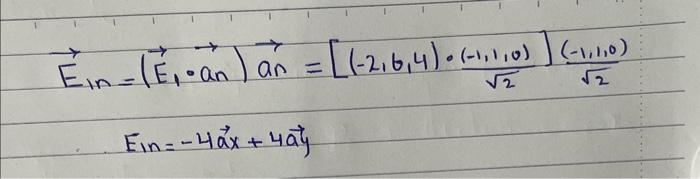 E⃗₁n = (E⃗₁ • a⃗n) a⃗n = [(-2,6,4) • (-1,1,0)/√2] (-1,1,0)/√2
E₁n = -4a⃗x + 4a⃗y